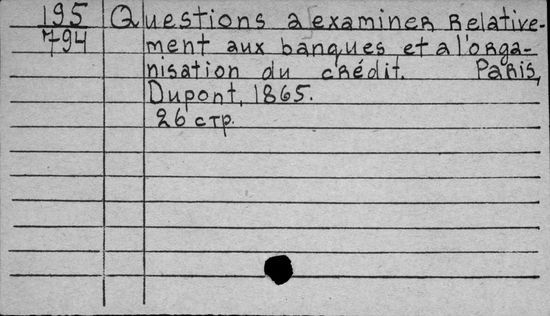 195 Questions a examiner relative-
794 ment aux banques et a l'orga-
nisation du crédit. Paris,
Dupont, 1865.
26 стр.